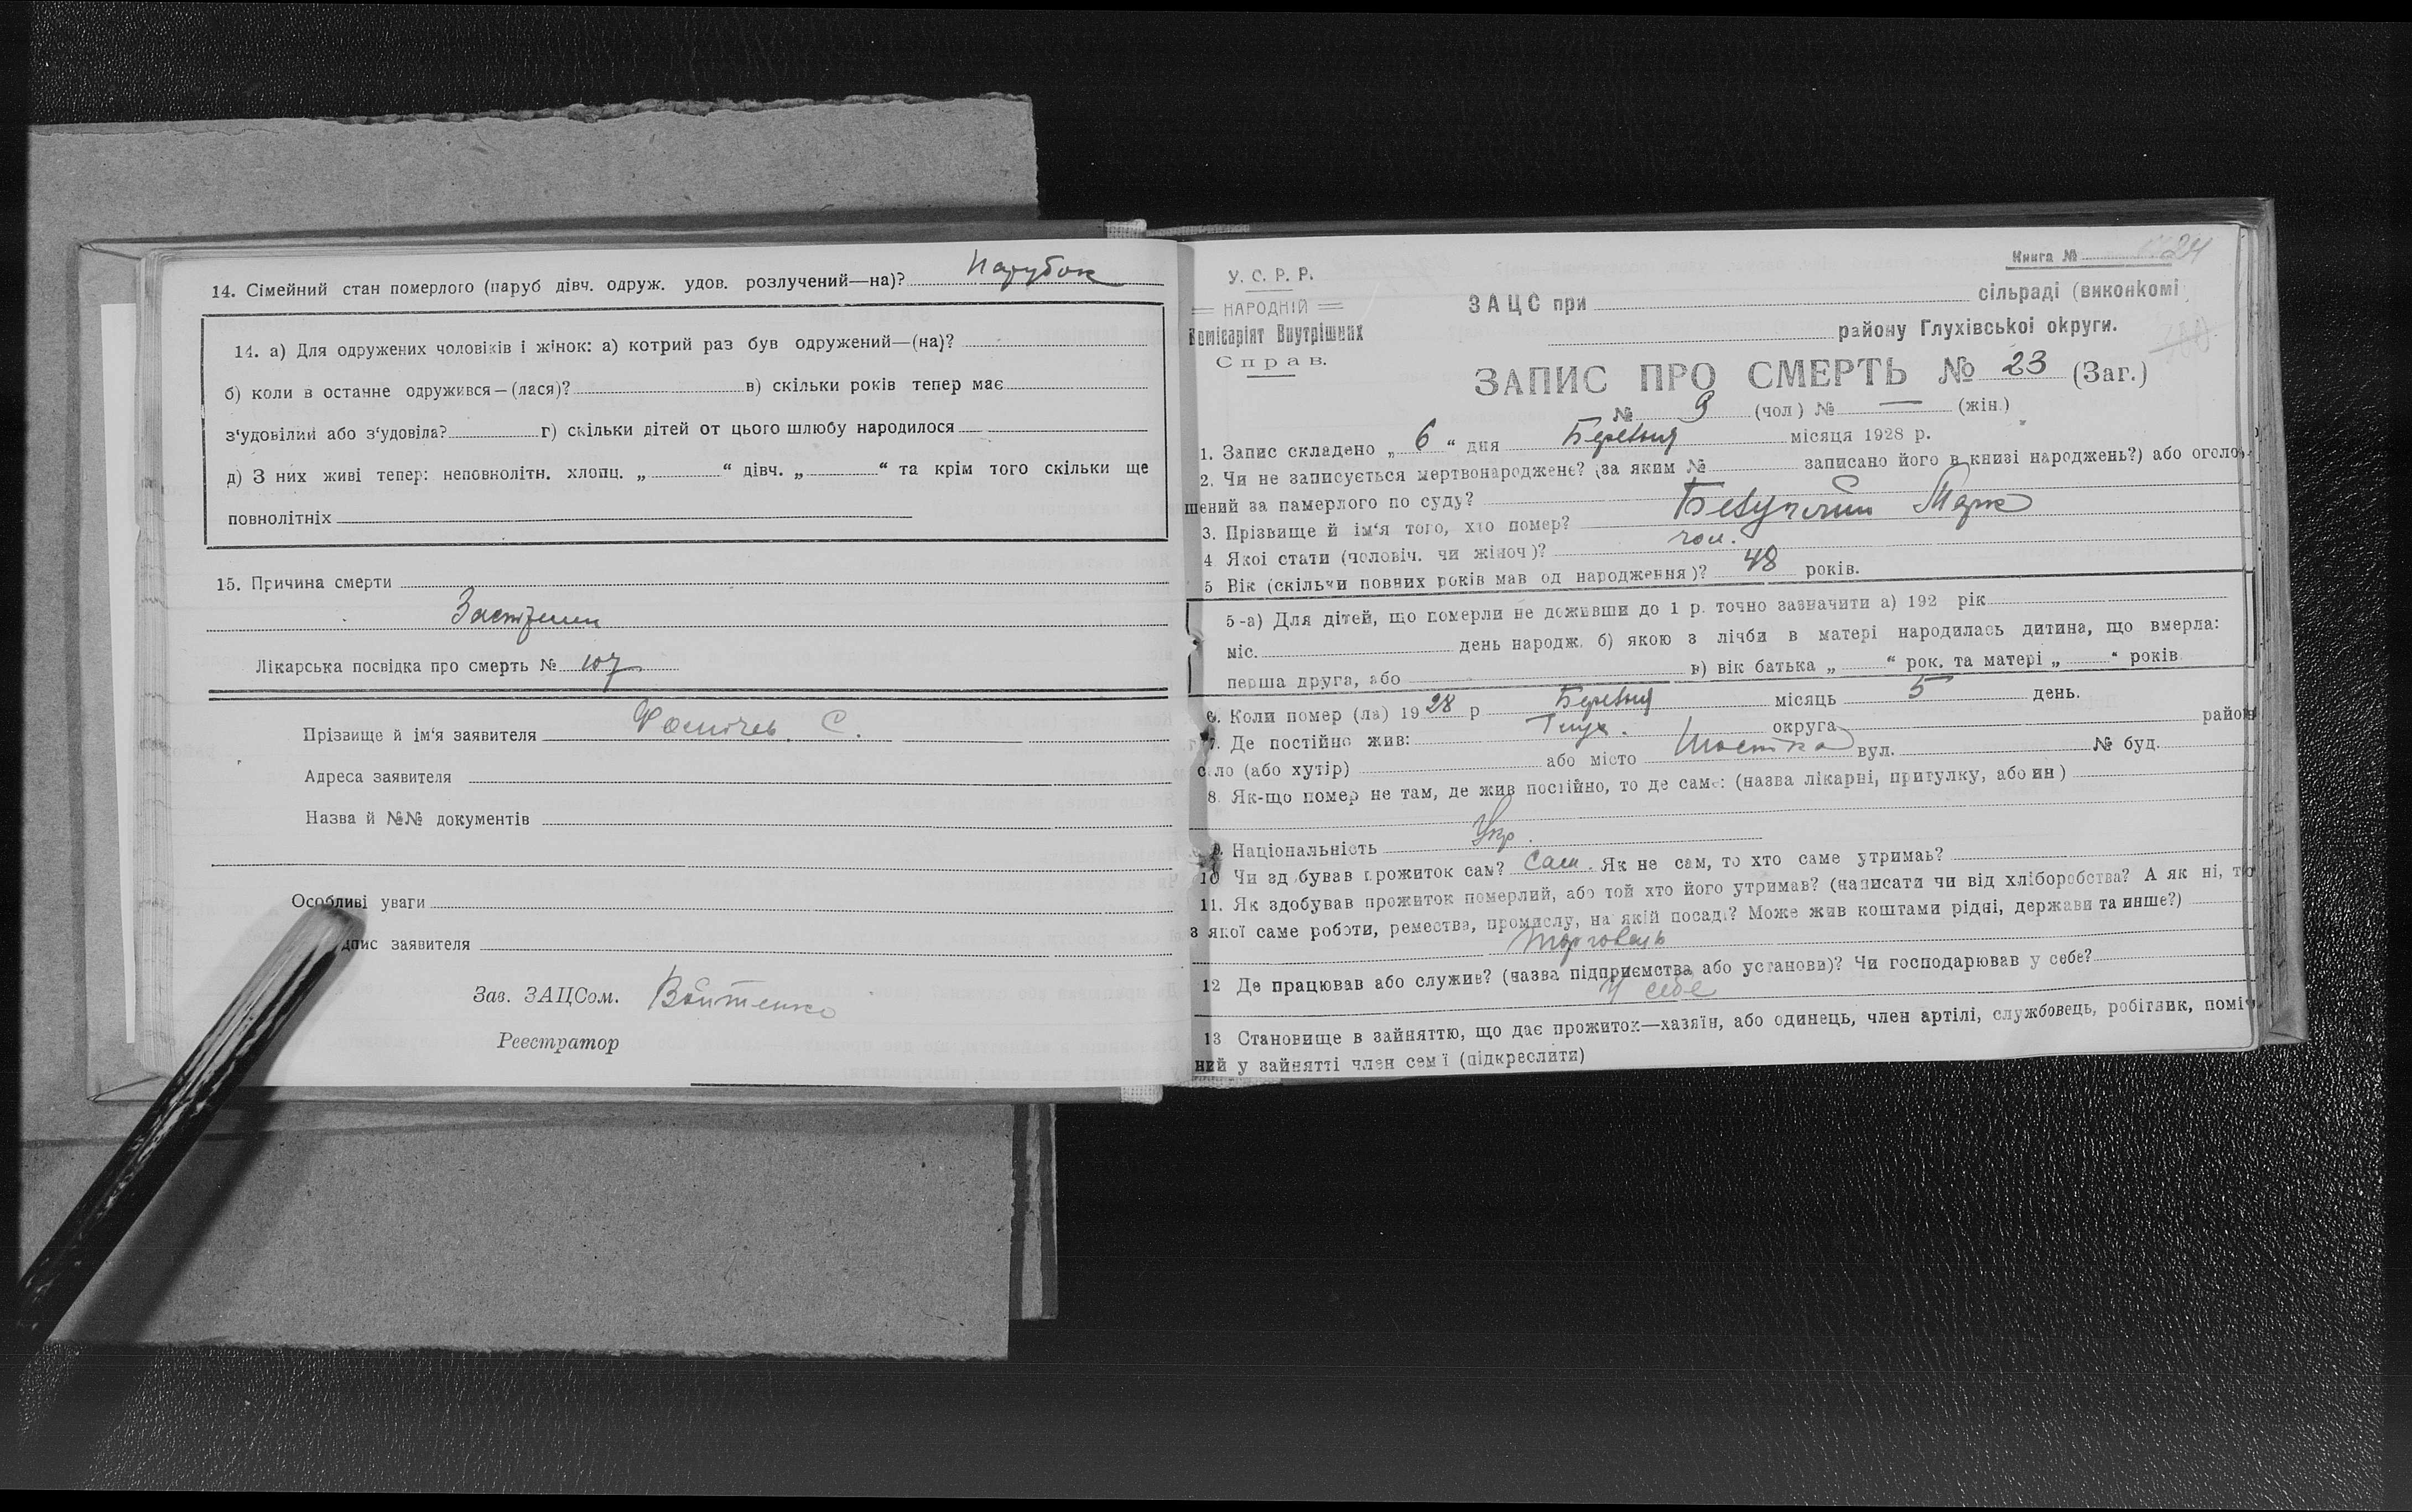 14. Сімейний стан померлого (паруб дівч. одруж. удов. розлучений—на)? Парубок
14. а) Для одружених чоловіків і жінок: а) котрий раз був одружений—(на)?
б) коли в останне одружився—(лася)? в) скільки років тепер має
з'удовілий або з'удовіла? г) скільки дітей от цього шлюбу народилося
д) З них живі тепер: неповнолітн. хлопц. „ “ дівч. „ “ та крім того скільки ще
повнолітніх
15. Причина смерти
Лікарська посвідка про смерть № 107
Прізвище й ім'я заявителя С.
Адреса заявителя
Назва й №№ документів
Особливі уваги
дпис заявителя
Зав. ЗАЦСом. Войтенко
Реєстратор
Книга № 24
У. С. Р. Р.
НАРОДНІЙ
Комісаріят Внутрішних
Справ.
ЗАЦС при сільраді (виконкомі
району Глухівської округи.
ЗАПИС ПРО СМЕРТЬ № 23 (Заг.)
№ 9 (чол) № — (жін.)
1. Запис складено „ 6 “ дня Березня місяця 1928 р.
2. Чи не записується мертвонароджене? (за яким № записано його в книзі народжень?) або оголо
шений за памерлого по суду?
3. Прізвище й ім'я того, хто помер? Марк
4 Якої стати (чоловіч. чи жіноч)? чол.
5 Вік (скільки повних років мав од народження)? 48 років.
5-а) Для дітей, що померли не доживши до 1 р. точно зазначити а) 192 рік
міс. день народж. б) якою з лічби в матері народилась дитина, що вмерла:
перша друга, або в) вік батька „ “ рок. та матері „ “ років
6. Коли помер (ла) 1928 р Березня місяць 5 день.
7. Де постійно жив: Глух. округа район
село (або хутір) або місто Шостка вул. № буд.
8. Як-що помер не там, де жив постійно, то де саме: (назва лікарні, притулку, або ин)
9. Національність Укр.
10 Чи здобував прожиток сам? сам. Як не сам, то хто саме утримав?
11. Як здобував прожиток померлий, або той хто його утримав? (написати чи від хліборобства? А як ні, то
з якої саме роботи, ремества, промислу, на якій посаді? Може жив коштами рідні, держави та инше?)
торговець
12 Де працював або служив? (назва підприємства або установи)? Чи господарював у себе?
У себе
13 Становище в зайняттю, що дає прожиток—хазяїн, або одинець, член артілі, службовець, робітник, поміч
ний у зайнятті член сем'ї (підкреслити)